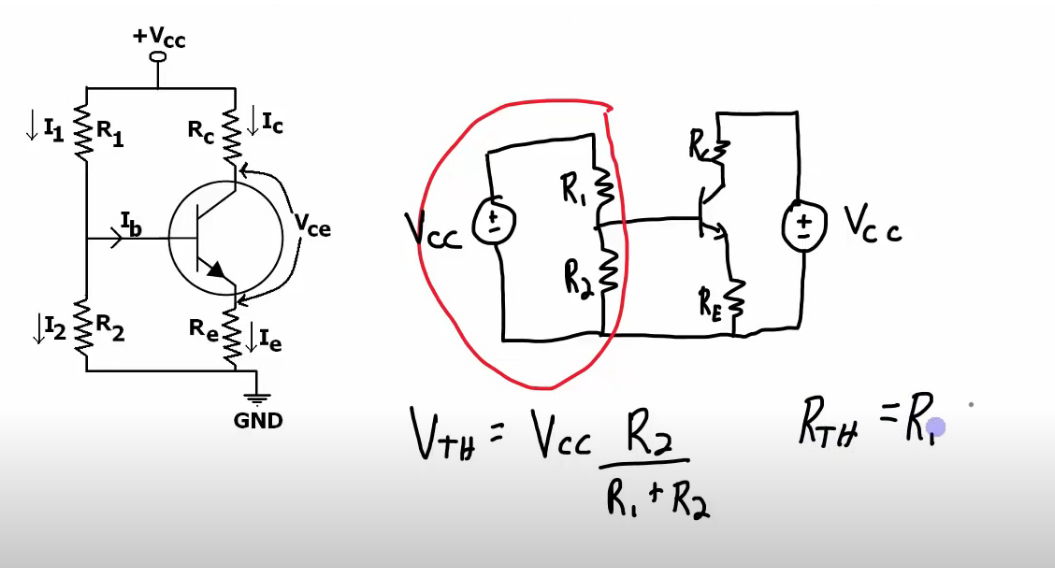 +Vcc
I1
R1
Rc
Ic
Ib
Vce
I2
R2
Re
Ie
GND
Vcc
R1
R2
Rc
RE
Vcc
VTH = Vcc R2
R1 + R2
RTH = R1